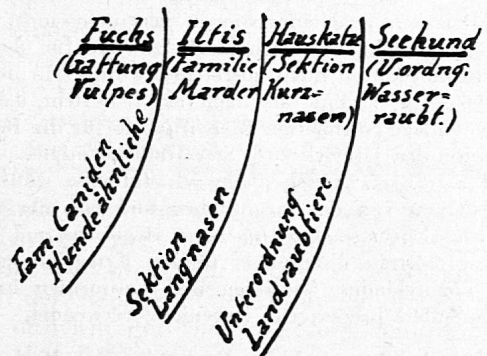 Fuchs
(Gattung
Vulpes)
Iltis
(Familie
Marder
Hauskatze
(Sektion
Kurz=
nasen)
Seehund
(U.ordng.
Wasser=
raubt.)
Fam. Caniden
Hundeähnliche
Sektion
Langnasen
Unterordnung
Landraubtiere